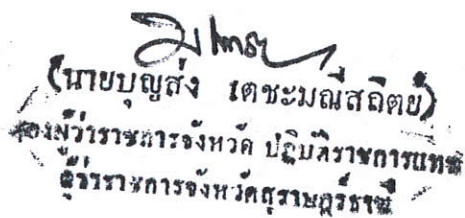 (นายบุญส่ง เตชะมณีสถิตย์)
รองผู้ว่าราชการจังหวัด ปฏิบัติราชการแทน
ผู้ว่าราชการจังหวัดสุราษฎร์ธานี